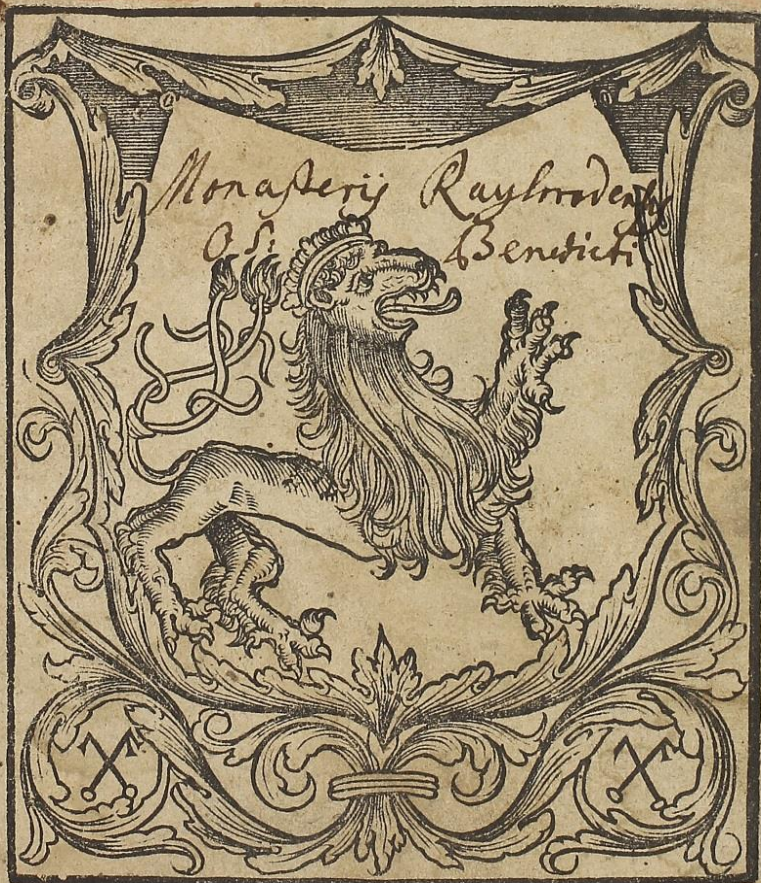 Monasterij Rayhradensis
O. S: Benedicti